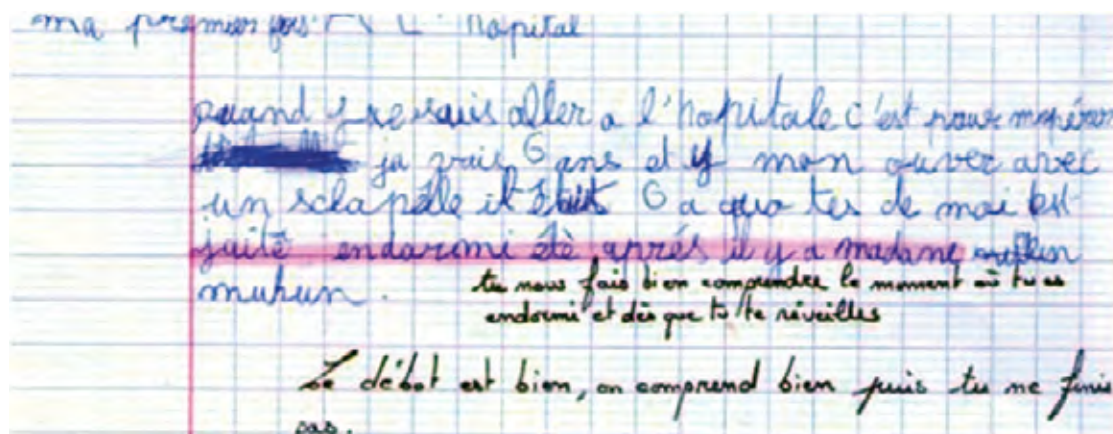 ma premier fois A L' hopital
quand y se suis aller a l'hopitale c'est pour mopérer
ja vais 6 ans et y mon ouver avec
un sclapelle it étuis 6 a quo tes de moi est
juité endormi étè aprés il y a madame un
muhun.
tu nous fais bien comprendre le moment où tu es
endormi et dès que tu te réveilles
Le début est bien, on comprend bien puis tu ne finis
pas.